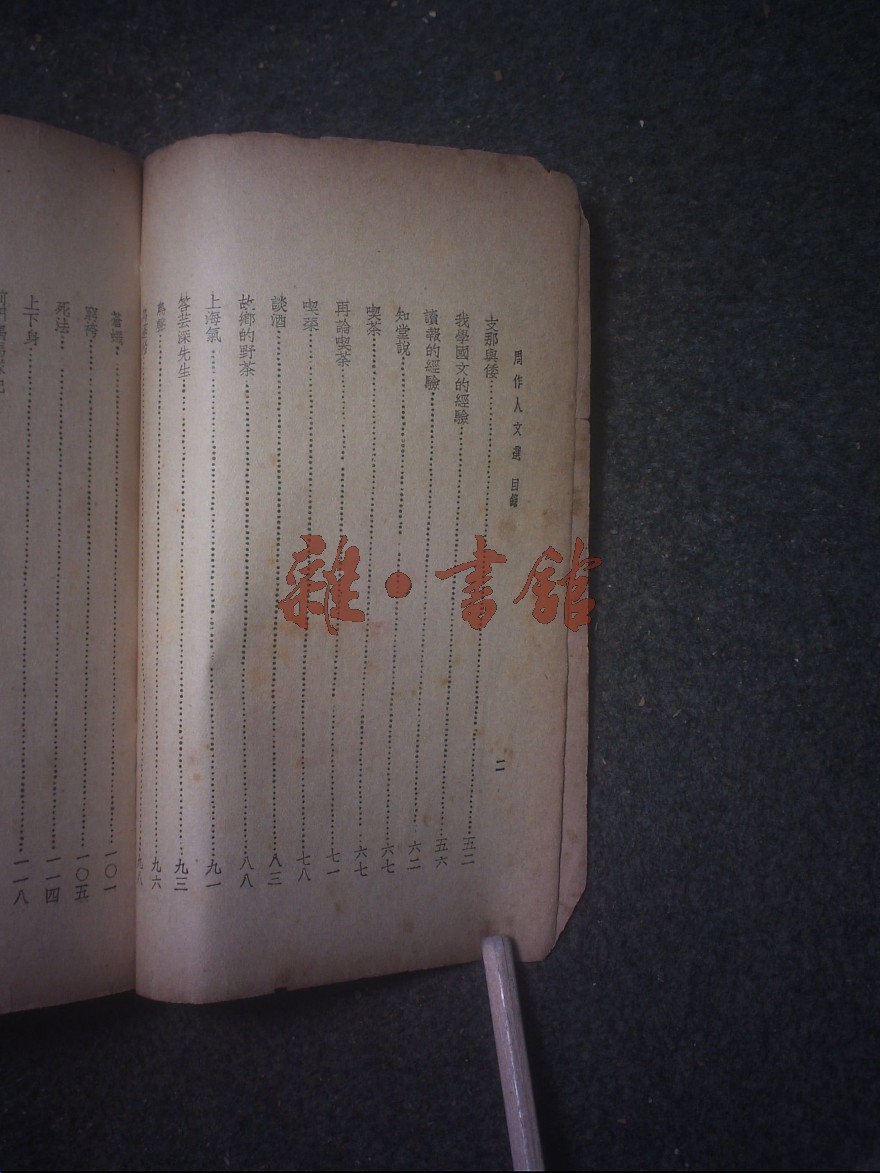 周作人文選 目錄
二
支那與倭……五二
我學國文的經驗……五六
讀報的經驗……六二
知堂說……六七
喫茶……六七
再論喫茶……七一
喫菜……七八
談酒……八三
故鄉的野菜……八八
上海氣……九一
答芸深先生……九三
鳥聲……九六
九八
蒼蠅……一〇一
窮袴……一〇五
死法……一一四
上下身……一一八
雜·書館